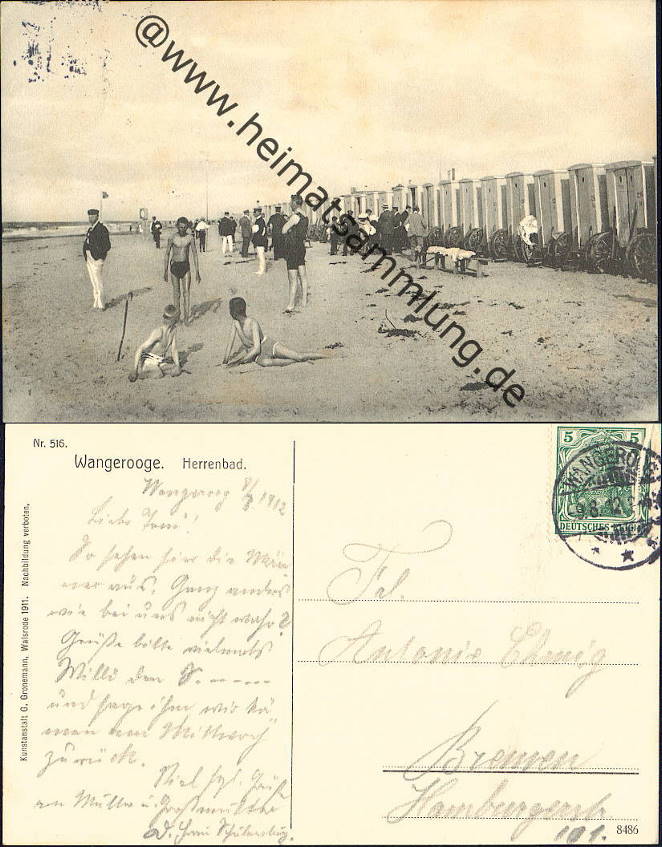 @www.heimatsammlung.de
Nr. 516.
Wangerooge. Herrenbad.
Kunstanstalt G. Gronemann, Walsrode 1911. Nachbildung verboten.
Wangeroog 8/8 1912
Liebe Toni!
So sehen hier die Män-
ner aus. Ganz anders
wie bei uns nicht wahr?
Grüße bitte vielmals
Willi den S.
und sage ihm wir kä
men am Mittwoch
zurück.
Viel hzl. Grüße
an Mutter u. Großmutter
5 5
DEUTSCHES REICH
WANGEROOG
9.8.12
Frl.
Antonie
Bremen
Hamburgerstr
101.
8486